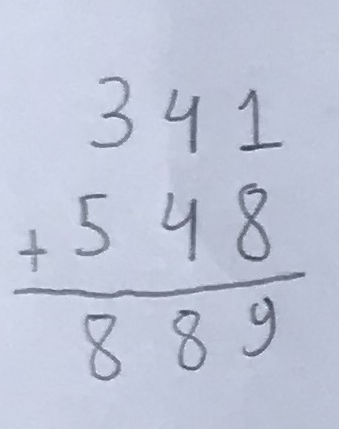 341
+ 548
889